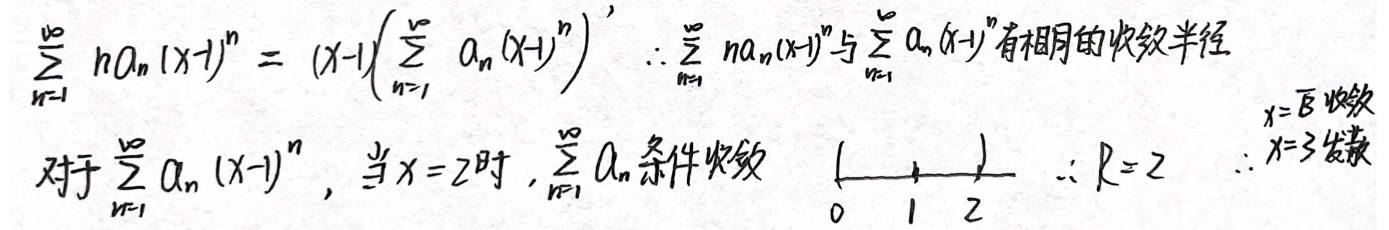 ∑_{n=1}^{∞} na_n(x-1)^n = (x-1)(∑_{n=1}^{∞} a_n(x-1)^n)' ∴ ∑_{n=1}^{∞} na_n(x-1)^n与∑_{n=1}^{∞} a_n(x-1)^n有相同的收敛半径
对于∑_{n=1}^{∞} a_n(x-1)^n, 当x=2时, ∑_{n=1}^{∞} a_n条件收敛 0 1 2 ∴ R=2 ∴ x=√3收敛 x=3发散